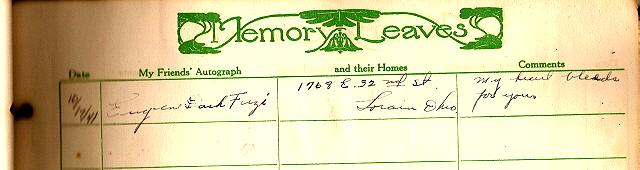 Memory Leaves
Date My Friends' Autograph and their Homes Comments
10/19/41 Eugene 1768 E. 32 nd St. My heart bleads
Lorain Ohio for you